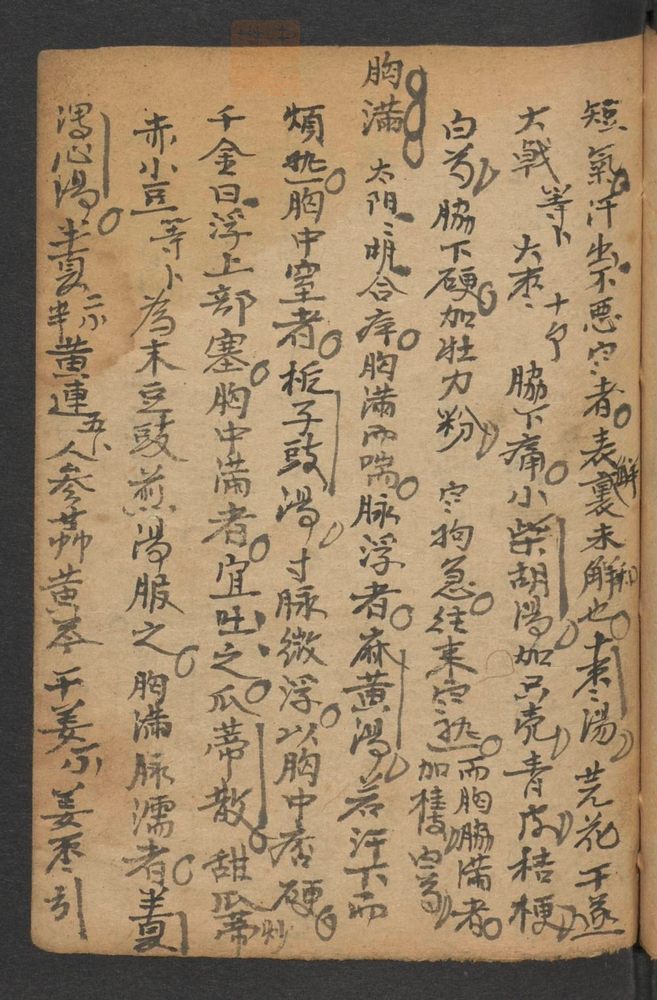 短氣汗出不惡寒者表裏未解也十棗湯 芫花 干遂
大戟等卜 大枣十个 脇下痛小柴胡湯加只壳青皮桔梗
白芍脇下硬加牡力粉 寒拘急往来寒热而胸脇满者加桂白芍
胸满 太阳明合病胸满而喘脉浮者麻黄湯若汗下而
煩热胸中窒者栀子豉湯寸脉微浮以胸中痞硬
千金曰浮上部塞胸中满者宜吐之瓜蒂散 甜瓜蒂炒
赤小豆等卜為末豆豉煎湯服之 胸满脉濡者半夏
瀉心湯半夏二小半黄連五卜人参 黄芩 干姜 姜枣引